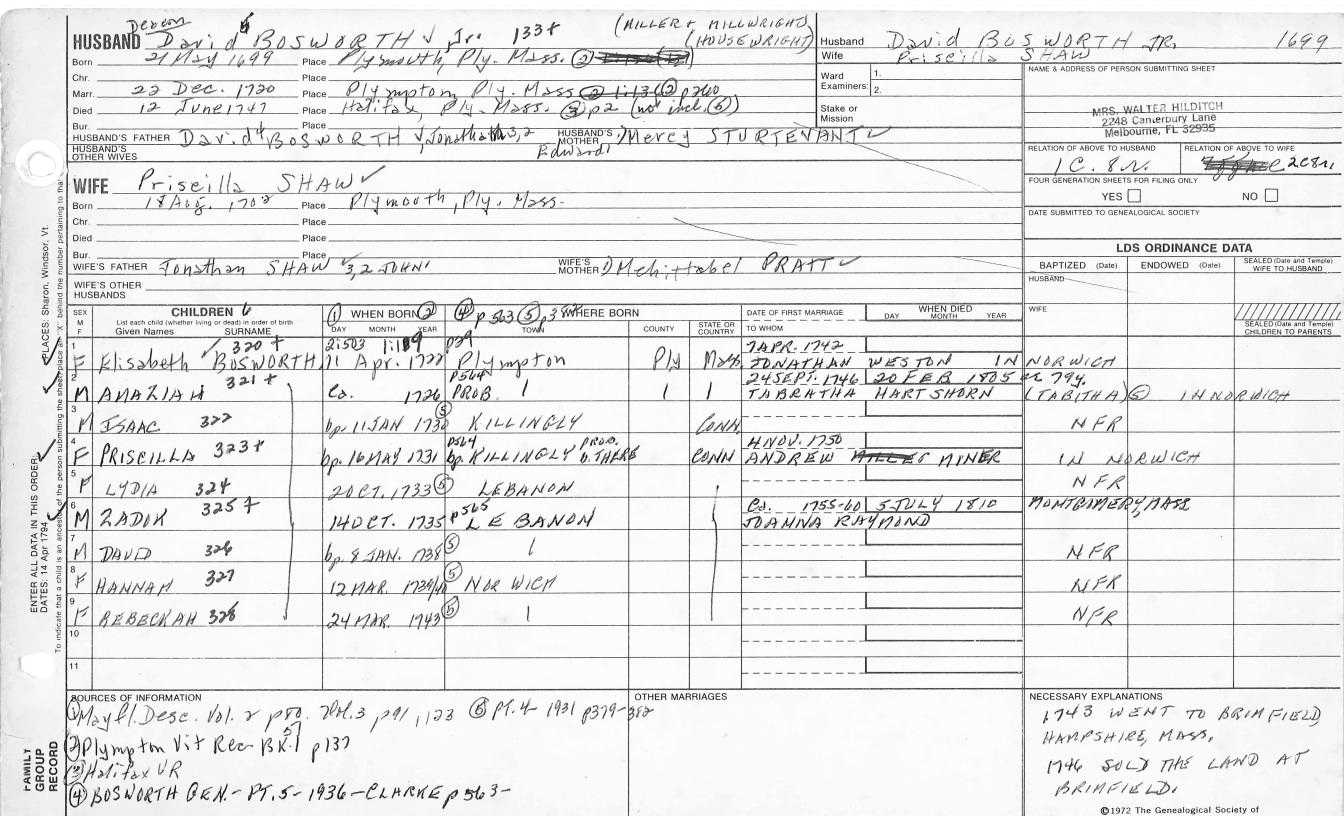 Deacon 5 (MILLER & MILLWRIGHT)
HUSBAND David BOSWORTH Jr. 133+ (HOUSEWRIGHT)
Born 21 May 1699 Place Plymouth, Ply. Mass. ②
Chr. Place
Marr. 22 Dec. 1720 Place Plympton Ply. Mass ② p260
Died 12 June 1747 Place Halifax Ply. Mass. ③ p2 (not incl. ⑥)
Bur. Place
HUSBAND'S FATHER David 4 BOSWORTH, Jonathan 3,2 Edward 1 HUSBAND'S MOTHER Mercy STURTEVANT
HUSBAND'S OTHER WIVES
WIFE Priscilla SHAW
Born 18 Aug. 1702 Place Plymouth, Ply. Mass.
Chr. Place
Died Place
Bur. Place
WIFE'S FATHER Jonathan SHAW 3,2 JOHN 1 WIFE'S MOTHER Mehittabel PRATT
WIFE'S OTHER HUSBANDS
Husband David BOSWORTH JR. 1699
Wife Priscilla SHAW
Ward 1.
Examiners: 2.
Stake or Mission
NAME & ADDRESS OF PERSON SUBMITTING SHEET
MRS. WALTER HILDITCH
2248 Canterbury Lane
Melbourne, FL 32935
RELATION OF ABOVE TO HUSBAND RELATION OF ABOVE TO WIFE
1C. 8r. 2C8r.
FOUR GENERATION SHEETS FOR FILING ONLY
YES NO
DATE SUBMITTED TO GENEALOGICAL SOCIETY
LDS ORDINANCE DATA
BAPTIZED (Date) ENDOWED (Date) SEALED (Date and Temple) WIFE TO HUSBAND
HUSBAND
WIFE
SEALED (Date and Temple) CHILDREN TO PARENTS
SEX M F CHILDREN 6 ① WHEN BORN ② ④ p563 ⑤ p382 WHERE BORN DATE OF FIRST MARRIAGE WHEN DIED
List each child (whether living or dead) in order of birth
Given Names SURNAME DAY MONTH YEAR TOWN COUNTY STATE OR COUNTRY TO WHOM DAY MONTH YEAR
1 320+ 2:503 p29 7 APR. 1742
F Elisabeth BOSWORTH 11 Apr. 1722 Plympton Ply Mass JONATHAN WESTON IN NORWICH
2 321+ p564 24 SEPT. 1746 20 FEB 1805 ae 79y.
M AMAZIAH Ca. 1726 PROB. TABRATHA HARTSHORN (TABITHA) ⑤ IN NORWICH
3 M ISAAC 322 bp. 11 JAN 1730 ⑤ KILLINGLY CONN. NFR
4 p564 PROB. 4 NOV. 1750
F PRISCILLA 323+ bp. 16 MAY 1731 bp. KILLINGLY b. THERE CONN ANDREW MINER IN NORWICH
5 F LYDIA 324 2 OCT. 1733 ⑤ LEBANON NFR
6 325+ p565 Ca. 1755-60 5 JULY 1810 MONTGOMERY, MASS
M ZADOK 14 OCT. 1735 LEBANON JOANNA RAYMOND
7 M DAVID 326 bp. 8 JAN. 1738 ⑤ NFR
8 F HANNAH 327 12 MAR. 1739/40 ⑤ NORWICH NFR
9 F REBECKAH 328 24 MAR. 1743 ⑤ NFR
10
11
SOURCES OF INFORMATION
① Mayfl. Desc. Vol. 2 p80. Vol. 3 p91, 123 ⑥ PT. 4- 1931 p379-382
② Plympton Vit Rec- BK. p137
③ Halifax VR
④ BOSWORTH GEN.- PT. 5- 1936- CLARKE p563-
OTHER MARRIAGES
NECESSARY EXPLANATIONS
1743 WENT TO BRIMFIELD,
HAMPSHIRE, MASS.
1746 SOLD THE LAND AT
BRIMFIELD.
©1972 The Genealogical Society of
FAMILY GROUP RECORD
ENTER ALL DATA IN THIS ORDER:
DATES: 14 Apr 1794
PLACES: Sharon, Windsor, Vt.
To indicate that a child is an ancestor of the person submitting the sheet, place an "X" behind the number pertaining to that